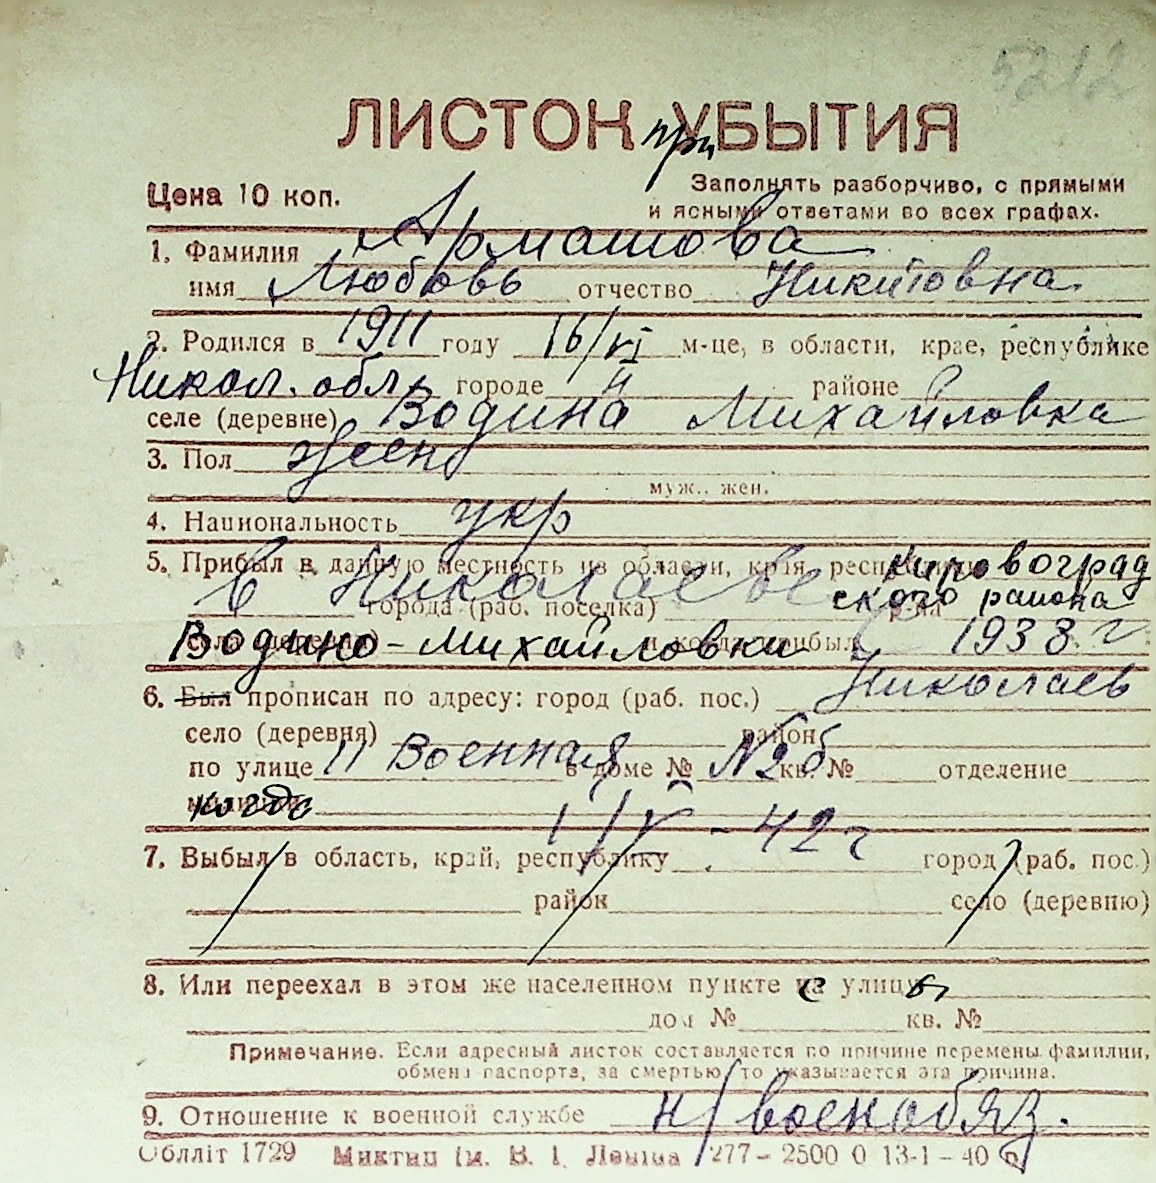 5212
ЛИСТОК при УБЫТИЯ
Цена 10 коп.
Заполнять разборчиво, с прямыми
и ясными ответами во всех графах.
1. Фамилия Армашова
имя Любовь отчество Никитовна
2. Родился в 1911 году 16/VI м-це, в области, крае, республике
Никол. обл. городе н районе
селе (деревне) Водина Михайловка
3. Пол жен
муж., жен.
4. Национальность укр
5. Прибыл в данную местность из области, края, Кировоград
в Николаеве ского района
города (раб. поселка)
Водино-Михайловки и когда прибыл 1938 г
6. Был прописан по адресу: город (раб. пос.) Николаев
село (деревня) район
по улице 11 Военная в доме № №2б кв. № отделение
когда 1/V-42г
7. Выбыл в область, край, республику город (раб. пос.)
район село (деревню)
8. Или переехал в этом же населенном пункте с улицы
дом № кв. №
Примечание. Если адресный листок составляется по причине перемены фамилии,
обмена паспорта, за смертью, то указывается эта причина.
9. Отношение к военной службе н/военобяз.
Облліт 1729 Ім. В. І. Леніна 277-2500 0 13-1-40